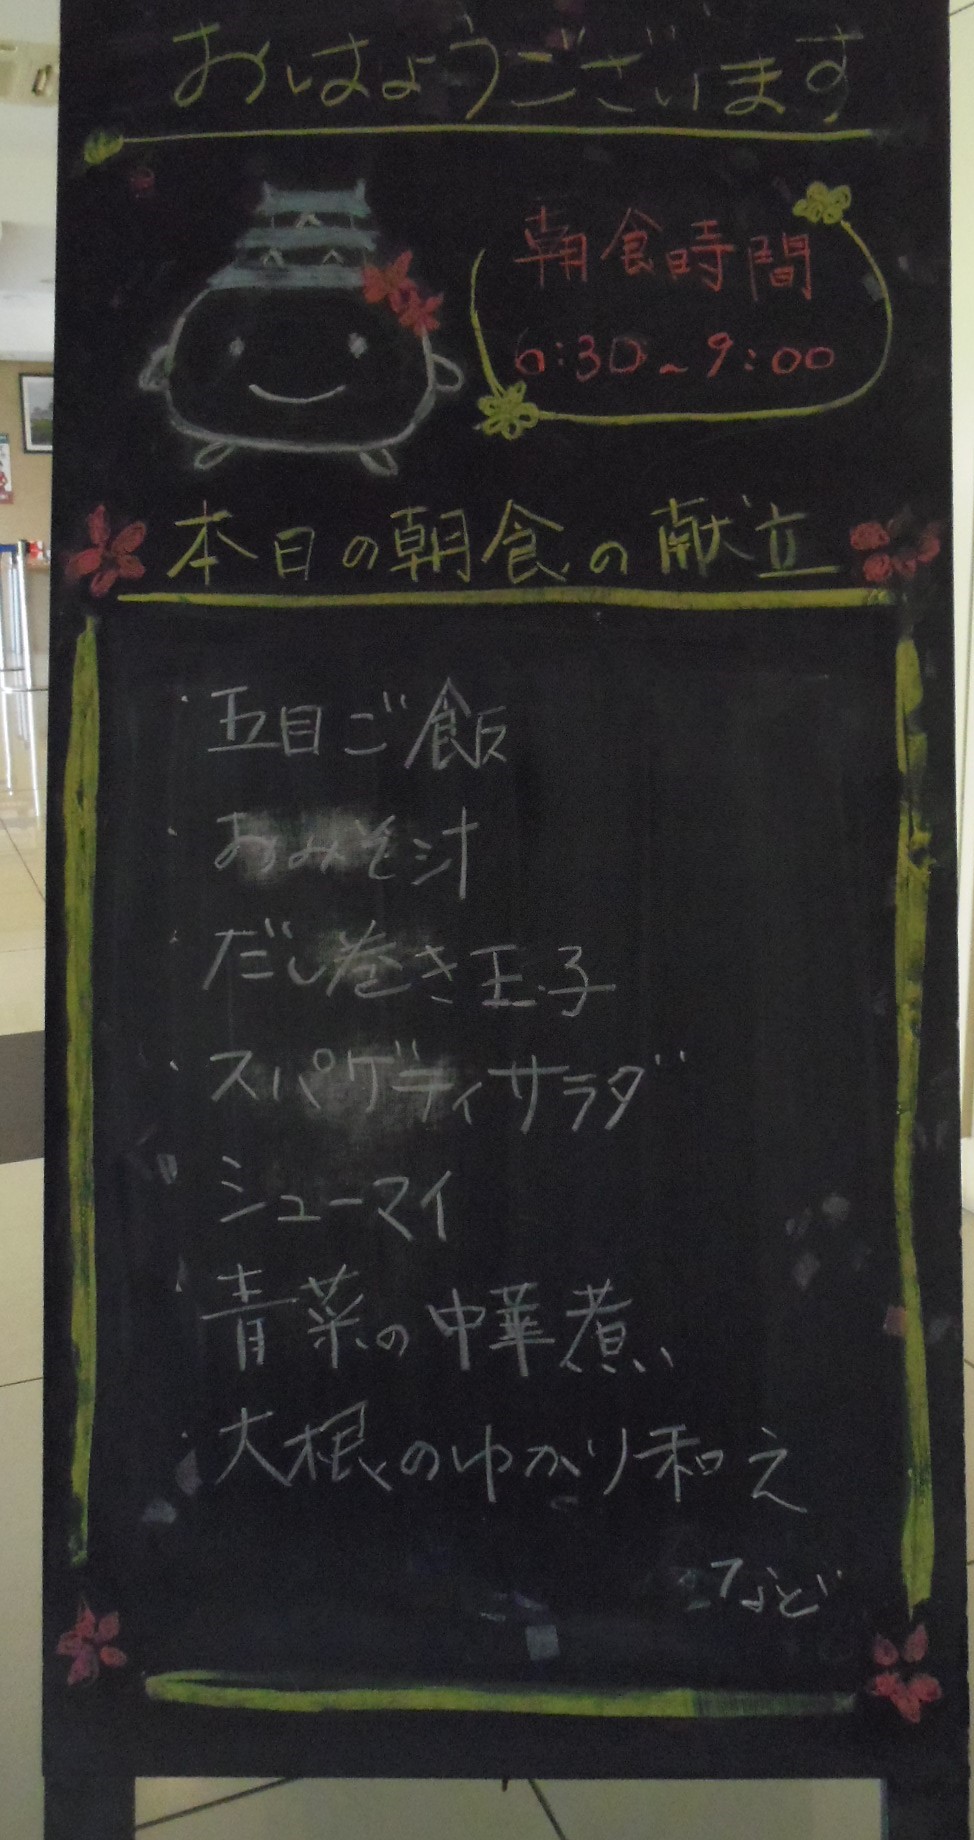 おはようございます
朝食時間
6:30~9:00
本日の朝食の献立
・五目ご飯
・おみそ汁
・だし巻き玉子
・スパゲティサラダ
・シューマイ
・青菜の中華煮
・大根のゆかり和え
など